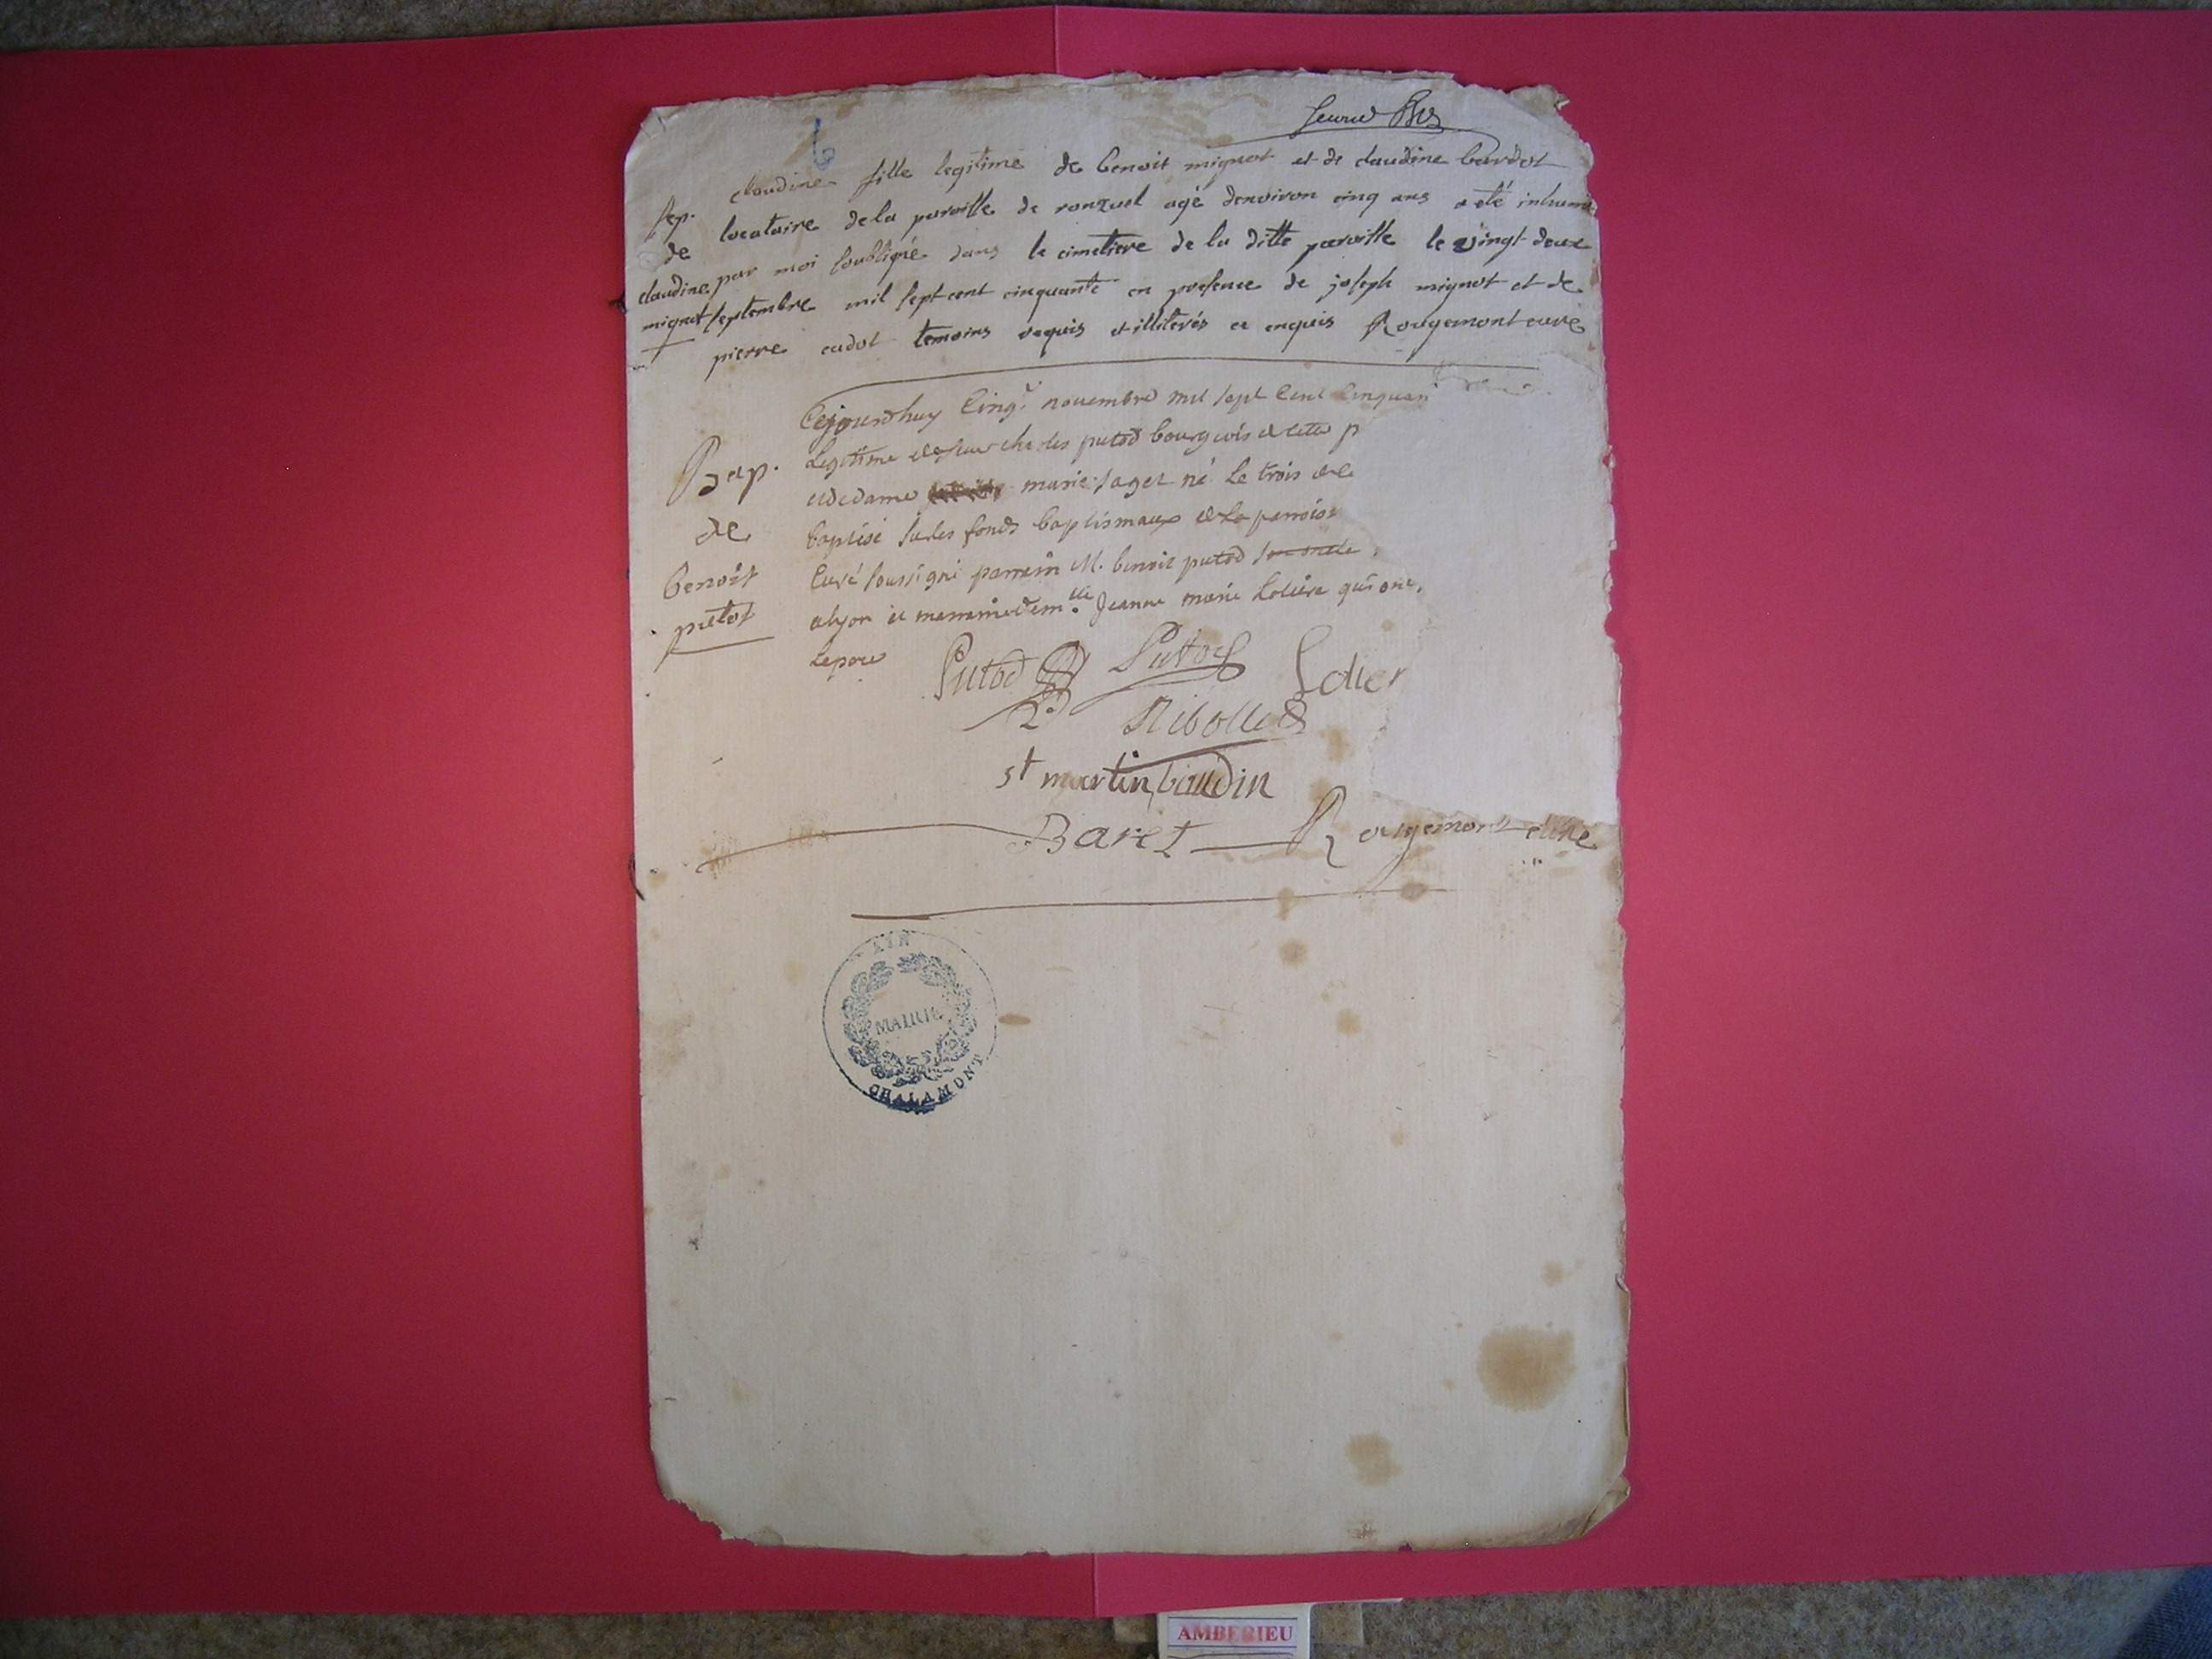 6
claudine fille legitime de benoit mignot et de claudine bardot
sep. locataire de la paroisse de ronzuel agé denviron cinq ans a été inhumé
de par moi soussigné dans le cimetiere de la ditte paroisse le vingt-deux
claudine septembre mil sept cent cinquante en presence de joseph mignot et de
mignot pierre cadot temoins requis et illiterés ce enquis Rougemont curé
Cejourdhuy Cinq.e novembre mil sept Cent Cinquan
Bap. Legitime de sieur charles putod bourgeois de cette p
et de dame marie saget né Le trois de
de baptisé sur les fonds baptismaux de la parroiss
benoit Curé soussigné parrein M. benoit putod son oncle
putot a lyon et marraine dem.lle Jeanne marie
Le pere
Putod Putod
Ribollet
st martin baudin
Baret Rougemont curé
AIN
MAIRIE
CHALAMONT
AMBERIEU